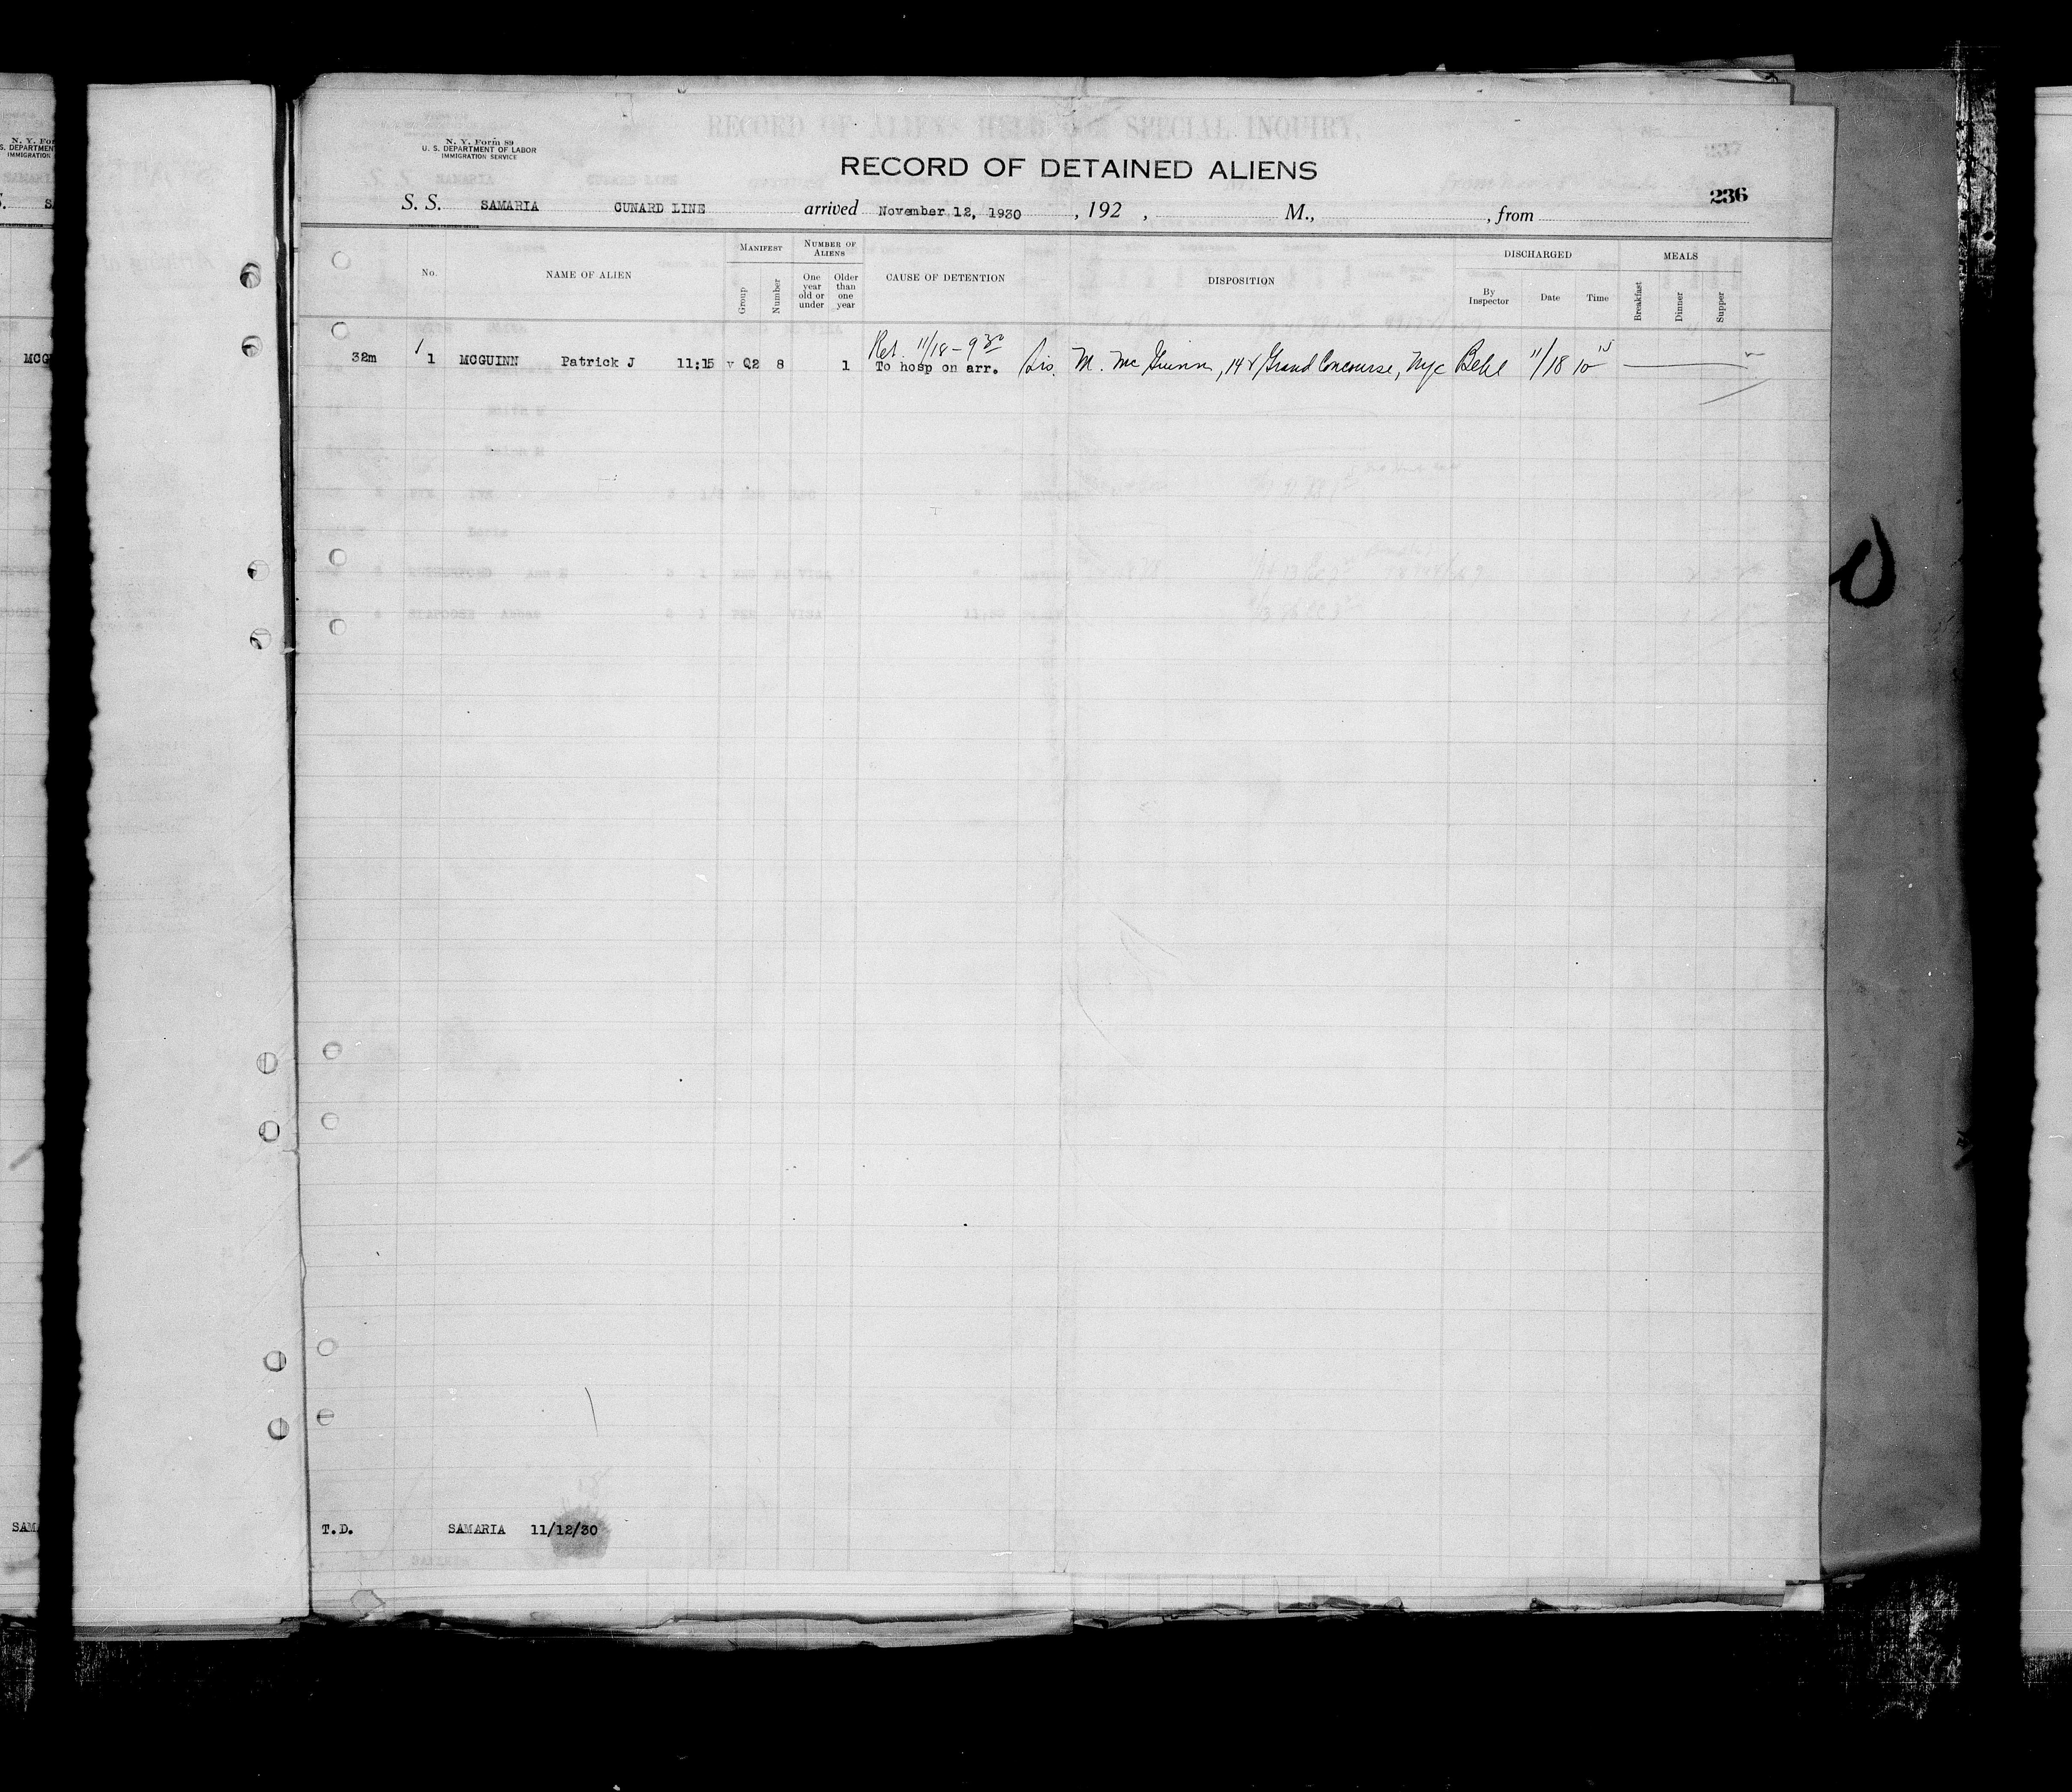 N. Y. Form 89
U. S. DEPARTMENT OF LABOR
IMMIGRATION SERVICE
RECORD OF DETAINED ALIENS
236
S. S. SAMARIA CUNARD LINE arrived November 12, 1930, 192 , M., , from
No. NAME OF ALIEN MANIFEST Group Number NUMBER OF ALIENS One year old or under Older than one year CAUSE OF DETENTION DISPOSITION DISCHARGED By Inspector Date Time MEALS Breakfast Dinner Supper
Ret. 11/18 - 9 30
32m 1 MCGUINN Patrick J 11:15 v Q2 8 1 To hosp on arr. Sis. M. McGuinn, Grand Concourse, Nyc 11/18 10 15
T.D. SAMARIA 11/12/30